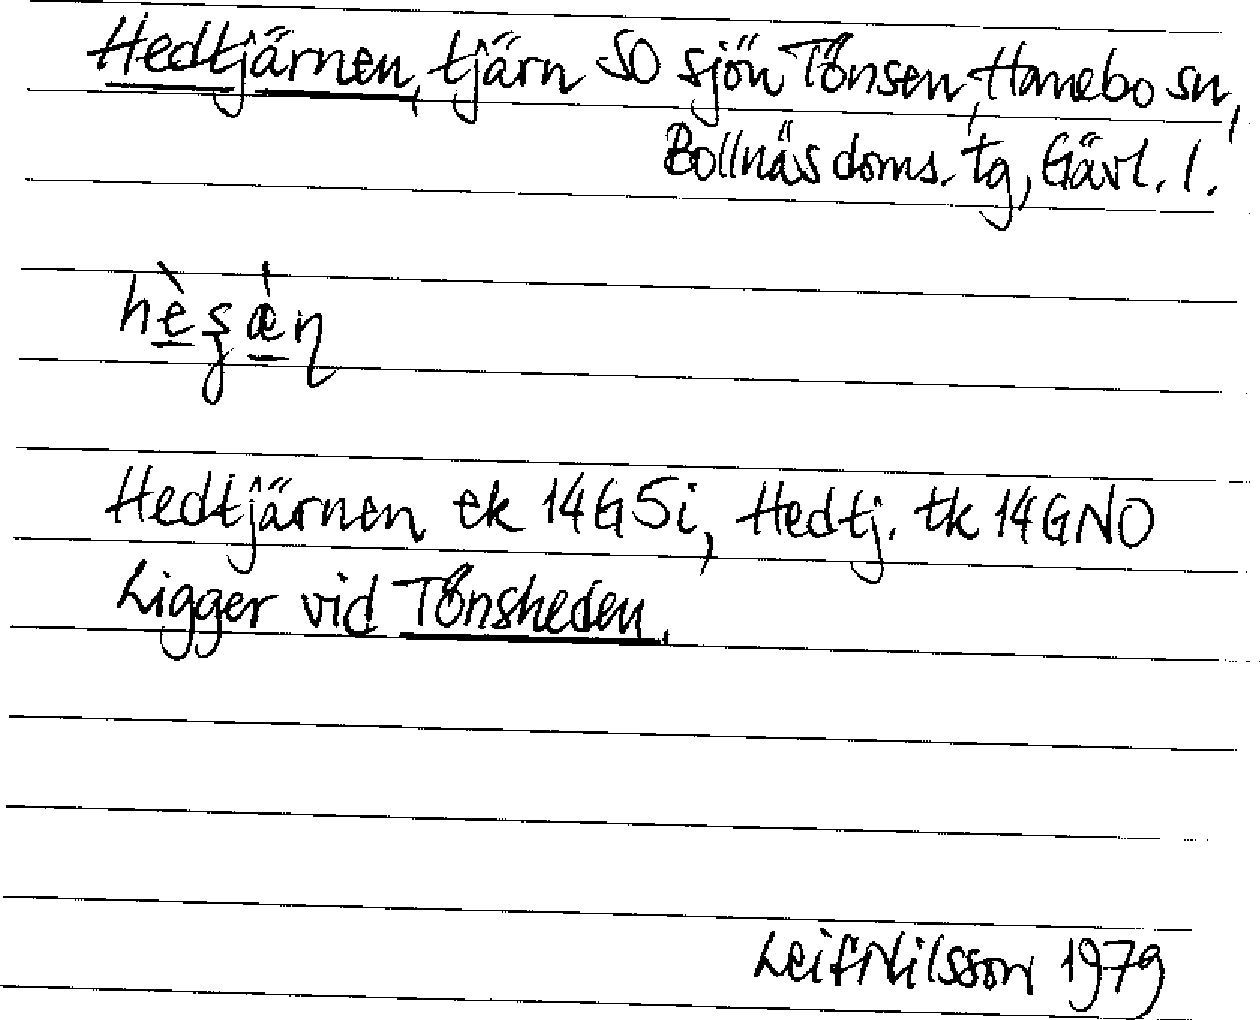 Hedtjärnen, tjärn SO sjön Tönsen, Hanebo sn,
Bollnäs doms. tg, Gävl. l.
Hedtjärnen ek 14G5i, Hedtj. tk 14GNO
Ligger vid Tönsheden.
Leif Nilsson 1979